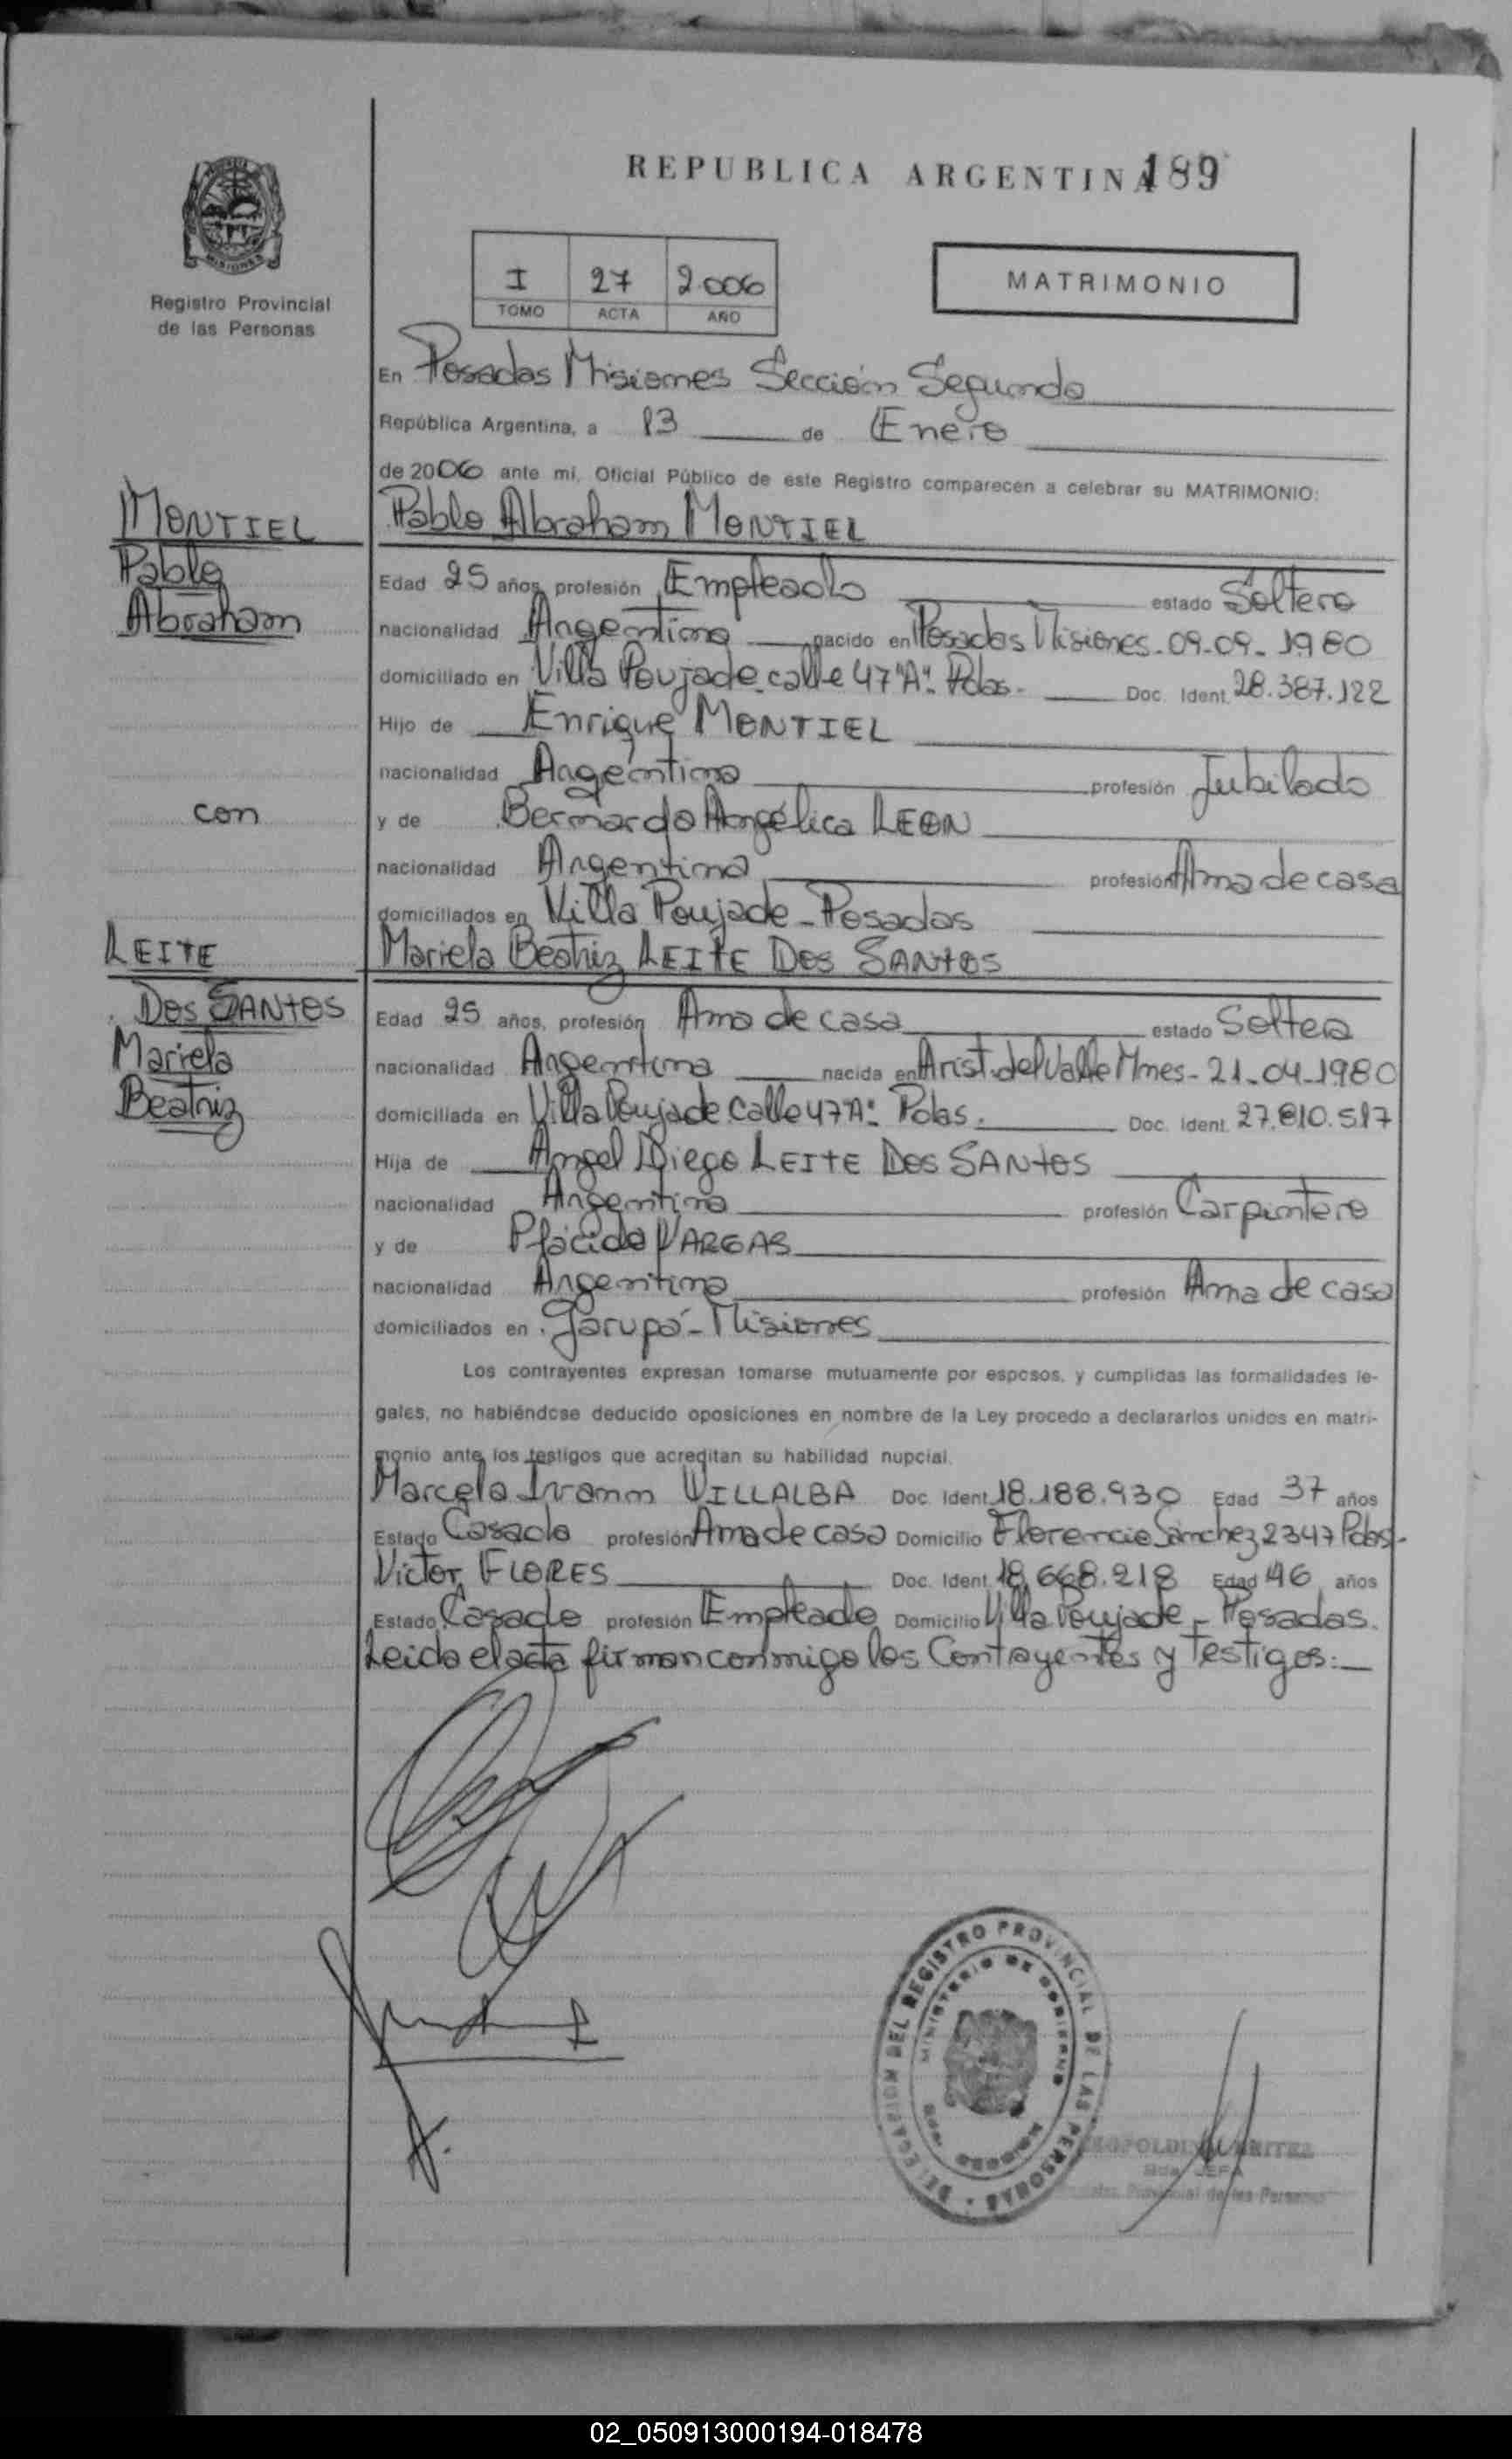 REPUBLICA ARGENTINA 189
I 27 2.006
TOMO ACTA AÑO
MATRIMONIO
MISIONES
Registro Provincial
de las Personas
En Posadas Misiones Sección Segunda
República Argentina, a 13 de Enero
de 2006 ante mi, Oficial Público de este Registro comparecen a celebrar su MATRIMONIO:
MONTIEL
Pablo
Abraham
con
LEITE
DOS SANTOS
Mariela
Beatriz
Pablo Abraham MONTIEL
Edad 25 años, profesión Empleado estado Soltero
nacionalidad Argentina nacido en Posadas Misiones - 09-09-1980
domiciliado en Villa Poujade calle 47 "A". Pdas - Doc. Ident. 28.387.122
Hijo de Enrique MONTIEL
nacionalidad Argentina profesión Jubilado
y de Bernarda Angélica LEON
nacionalidad Argentina profesión Ama de casa
domiciliados en Villa Poujade - Posadas
Mariela Beatriz LEITE DOS SANTOS
Edad 25 años, profesión Ama de casa estado Soltera
nacionalidad Argentina nacida en Arist. del Valle Mnes - 21-04-1980
domiciliada en Villa Poujade Calle 47 A: Pdas. Doc. Ident. 27.810.517
Hija de Angel Diego LEITE DOS SANTOS
nacionalidad Argentina profesión Carpintero
y de Plácida VARGAS
nacionalidad Argentina profesión Ama de casa
domiciliados en Garupá - Misiones
Los contrayentes expresan tomarse mutuamente por esposos, y cumplidas las formalidades le-
gales, no habiéndose deducido oposiciones en nombre de la Ley procedo a declararlos unidos en matri-
monio ante los testigos que acreditan su habilidad nupcial.
Marcela Ivann VILLALBA Doc. Ident. 18.188.930 Edad 37 años
Estado Casada profesión Ama de casa Domicilio Florencio Sánchez 2347 Pdas -
Victor FLORES Doc. Ident. 18.668.218 Edad 46 años
Estado Casado profesión Empleado Domicilio Villa Poujade - Posadas.
Leida el acta firman conmigo los Contrayentes y Testigos:
DELEGACION DEL REGISTRO PROVINCIAL DE LAS PERSONAS
MINISTERIO DE GOBIERNO
MISIONES
JEFA
Provincial de las Personas
02_050913000194-018478